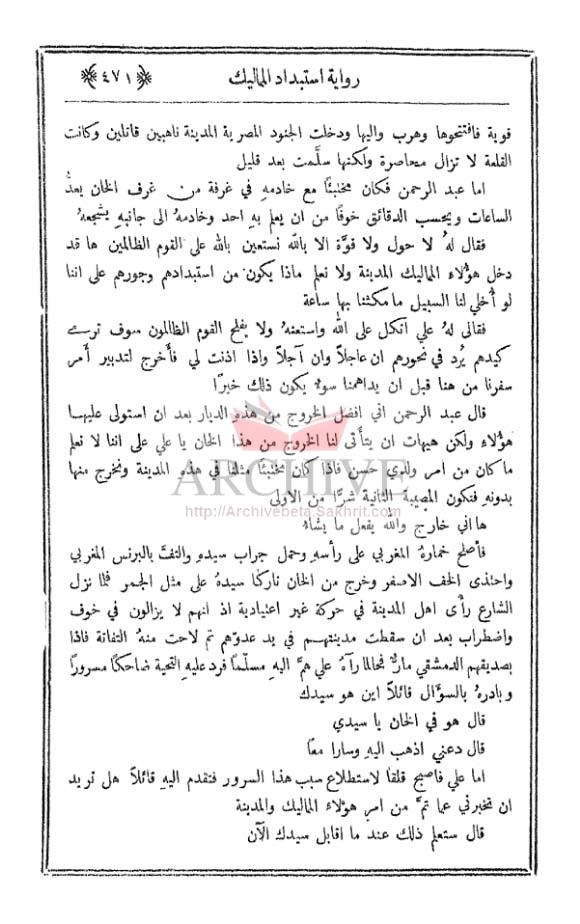 رواية استبداد المماليك
﴿٤٧١﴾
قوية فافتتحوها وهرب واليها ودخلت الجنود المصرية المدينة ناهبين قاتلين وكانت
القلعة لا تزال محاصرة ولكنها سلَّمت بعد قليل
اما عبد الرحمن فكان مختبئًا مع خادمهِ في غرفة من غرف الخان يعدُّ
الساعات ويحسب الدقائق خوفًا من ان يعلم بهِ احد وخادمهُ الى جانبهِ يشجعهُ
فقال لهُ لا حول ولا قوَّة الا بالله نستعين بالله على القوم الظالمين ها قد
دخل هؤلاء المماليك المدينة ولا نعلم ماذا يكون من استبدادهم وجورهم على اننا
لو أُخلي لنا السبيل ما مكثنا بها ساعة
فقال لهُ علي اتكل على الله واستعنهُ ولا يفلح القوم الظالمون سوف ترى
كيدهم يُرد في نحورهم ان عاجلاً وان آجلاً واذا اذنت لي فأَخرج لتدبير أَمر
سفرنا من هنا قبل ان يداهمنا سوء يكون ذلك خيرًا
قال عبد الرحمن اني افضل الخروج من هذه الديار بعد ان استولى عليها
هؤلاء ولكن هيهات ان يتأَتى لنا الخروج من هذا الخان يا علي على اننا لا نعلم
ما كان من امر ولدي حسن فاذا كان مختبئًا مثلنا في هذهِ المدينة ونخرج منها
بدونهِ فتكون المصيبة الثانية شرًّا من الاولى
ARCHIVE
http://Archivebeta.Sakhrit.com
ها اني خارج والله يفعل ما يشاء
فأصلح خمارهُ المغربي على رأسهِ وحمل جراب سيدهِ والتفَّ بالبرنس المغربي
واحتذى الخف الاصفر وخرج من الخان تاركًا سيدهُ على مثل الجمر فلما نزل
الشارع رأى اهل المدينة في حركة غير اعتيادية اذ انهم لا يزالون في خوف
واضطراب بعد ان سقطت مدينتهم في يد عدوّهم ثم لاحت منهُ التفاتة فاذا
بصديقهم الدمشقي مارٌّ فحالما رآهُ علي همَّ اليهِ مسلّمًا فرد عليهِ التحية ضاحكًا مسرورًا
وبادرهُ بالسؤَال قائلاً اين هو سيدك
قال هو في الخان يا سيدي
قال دعني اذهب اليهِ وسارا معًا
اما علي فاصبح قلقًا لاستطلاع سبب هذا السرور فتقدم اليهِ قائلاً هل تريد
ان تخبرني عما تمَّ من امر هؤلاء المماليك والمدينة
قال ستعلم ذلك عند ما اقابل سيدك الآن